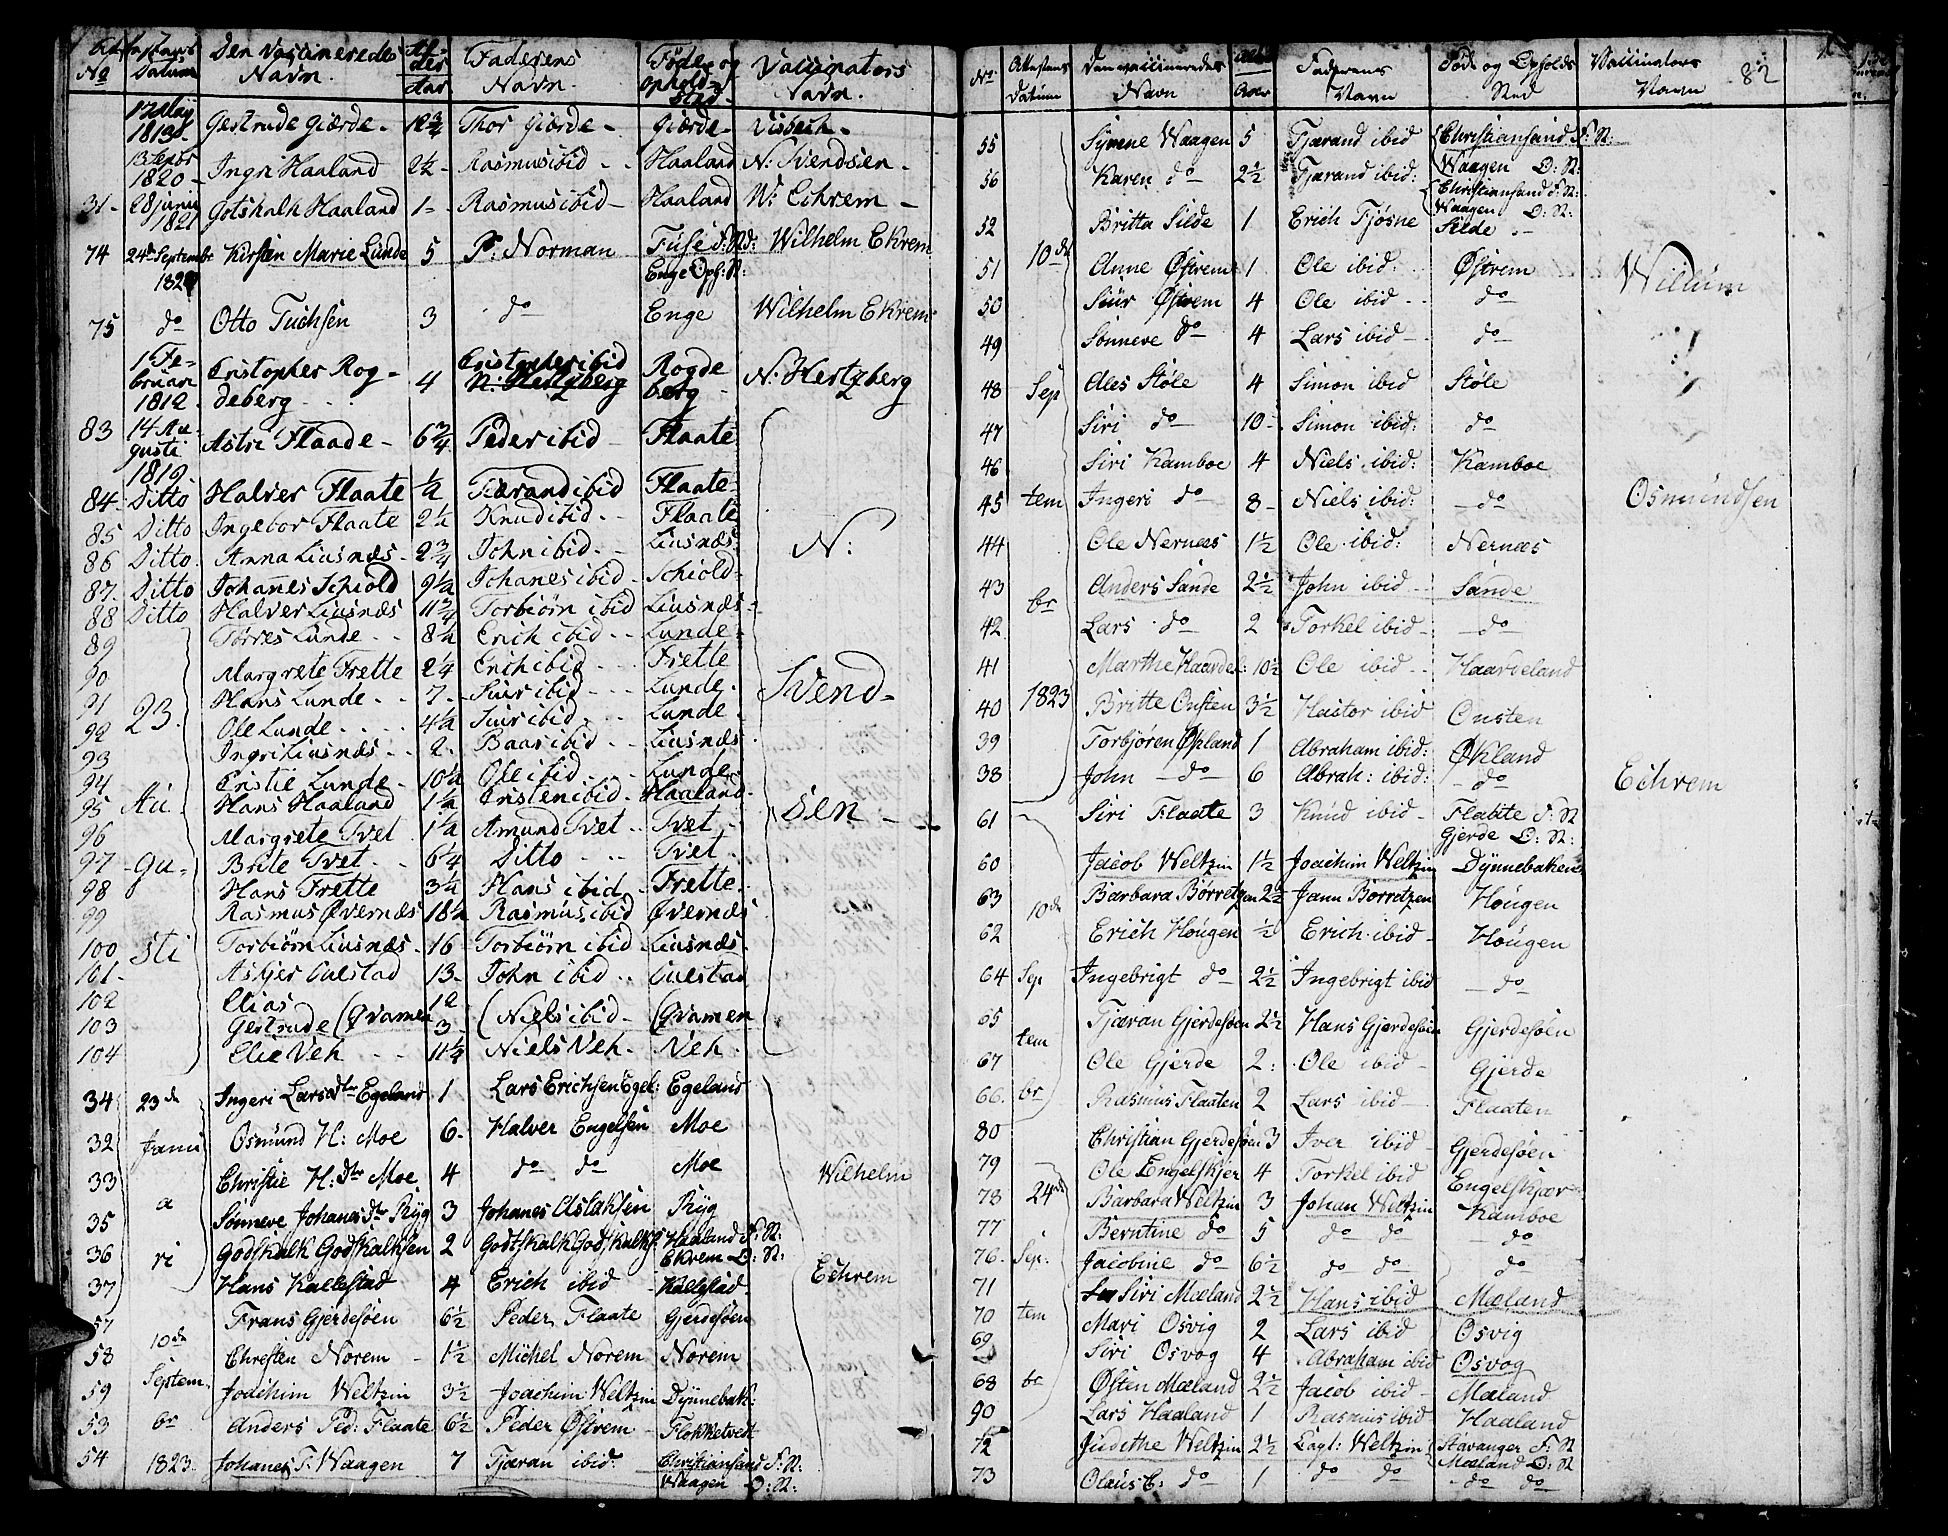 No Attestens Datum Den Vaccineredes Navn. Alder Aar Faderens Navn. Føde og Opholds Sted. Vaccinators Navn.
17 Maj 1813 Gertrude Giærde 12¾ Thor Giærde Giærde Disbech
13 Septbr 1820 Ingri Haaland 2½ Rasmus ibid Haaland N: Svendsen
31 28 junii 1821 Gotshalk Haaland 1 Rasmus ibid Haaland W: Echrem
74 24de Septembr Kirsten Marie Lunde 5 P: Norman Fuse F: St: Enge Oph: St: Wilhelm Ekrem
75 do Otto Tuchsen 3 do Enge Wilhelm Ekrem
1 Februari 1812 Cristopher Rogdeberg 4 Cristopher ibid Rogdeberg N: Hertzberg
83 14 Augusti 1819 Astri Flaade 6¾ Peder ibid Flaate
84 Ditto Halver Flaate ½ Tiærand ibid Flaate
85 Ditto Ingebor Flaate 2¼ Knud ibid Flaate
86 Ditto Anna Liusnæs 2¾ John ibid Liusnæs N:
87 Ditto Johanes Schiold 9½ Johanes ibid Schiold
88 Ditto Halver Liusnæs 11¾ Torbiørn ibid Liusnæs
89 Torres Lunde 8½ Erich ibid Lunde
90 Margrete Frette 2¼ Erich ibid Frette
91 23 Hans Lunde 7 Siur ibid Lunde Svend-
92 Ole Lunde 4½ Siur ibid Lunde
93 Ingri Liusnæs 2 Baar ibid Liusnæs
94 Cristie Lunde 10½ Ole ibid Lunde
95 Au Hans Haaland 1½ Cristen ibid Haaland sen
96 Margrete Tvet 1½ Amund Tvet Tvet
97 gu Brite Tvet 6¼ Ditto Tvet
98 Hans Frette 3½ Hans ibid Frette
99 Rasmus Øvernæs 18½ Rasmus ibid Øvernæs
100 sti Torbiørn Liusnæs 16 Torbiørn ibid Liusnæs
101 Askjer Culstad 13 John ibid Culstad
102 Elias 12
103 Gertrude (Qvamen 3 (Niels ibid (Qvamen
104 Elie Veh 11½ Niels Veh Veh
34 23de Ingeri Larsdtr Egeland 1 Lars Erichsen Egel: Egeland
32 Janu Osmund H: Moe 6 Halver Engelsen Moe
33 a Christie H: Dtr Moe 4 do do Moe Wilhelm
35 Sønneve Johanes Dtr Ryg 3 Johanes Aslaksen Ryg
36 ri Godskalk Godskalksen 2 Godtskalk Godskalks: Haaland F: St: Ekrem O: St:
37 Hans Kallestad 4 Erich ibid Kallestad Echrem
57 Frans Gjerdesøen 6½ Peder Flaate Gjerdesøen
58 10de Christen Norem 1½ Michel Norem Norem
59 Septem Joachim Weltzin 3½ Joachim Weltzin Dynnebak:
53 br Anders Ped: Flaate 6½ Peder Østrem Flokketvedt
54 1823 Johanes T: Waagen 7 Tjæran ibid: Christiansand F: St: Waagen O: St:
No Attestens Datum Den vaccineredes Navn Alder Aar Faderens Navn Føde og Opholds Sted Vaccinators Navn 82
55 Syrene Waagen 5 Tjærand ibid Christiansand F: St: Waagen O: St:
56 Karen do 2½ Tjærand ibid: Christiansand F: St: Waagen O: St:
52 Britta Silde 1 Erich Tjøsne Silde
51 10de Anne Østrem 1 Ole ibid: Østrem Willum
50 Siur Østrem 4 Ole ibid do
49 Sønneve do 4 Lars ibid do
48 Sep Ales Støle 4 Simon ibid Støle
47 Siri do 10 Simon ibid: do
46 Siri Kamboe 4 Niels ibid: Kamboe
45 tem Ingeri do 8 Niels ibid: do Osmundsen
44 Ole Nernæs 1½ Ole ibid: Nernæs
43 Anders Sande 2½ John ibid Sande
42 br Lars do 2 Torkel ibid do
41 Marthe Haardel: 10½ Ole ibid Haardeland
40 1823 Britte Onsten 3½ Hastor ibid Onsten
39 Torbjøren Økland 1 Abraham ibid: Økland
38 John do 6 Abrah: ibid: do Echrem
61 Siri Flaate 3 Knud ibid Flaate F: St Gjerde O: St:
60 Jacob Weltzin 1½ Joachim Weltzin Dynnebaken
63 10de Barbara Børretzen 2½ Jann Børretzen Hougen
62 Erich Hougen ½ Erich ibid Hougen
64 Sep Ingebrigt do 2½ Ingebrigt ibid do
65 tem Tjæran Gjerdesøen 2½ Hans Gjerdesøen Gjerdesøen
67 Ole Gjerde 2 Ole ibid Gjerde
66 br Rasmus Flaaten 2 Lars ibid Flaaten
80 Christian Gjerdesøen 3 Iver ibid Gjerdesøen
79 Ole Engelskjer 4 Torkel ibid Engelskjær
78 24de Barbara Weltzin 3 Johan Weltzin Kamboe
77 Berntine do 5 do do do
76 Sep: Jacobine do 6½ do do do
71 Siri Mæland 2½ Hans ibid Mæland
70 tem Mari Osvig 2 Lars ibid Osvig
69 Siri Osvog 4 Abraham ibid Osvog
68 br Østen Mæland 2½ Jacob ibid Mæland
90 Lars Haaland 1 Rasmus ibid Haaland
72 Judethe Weltzin 2½ Capt: Weltzin Stavanger F: St Mæland O: St
73 Olaus C: do 1 do do do do